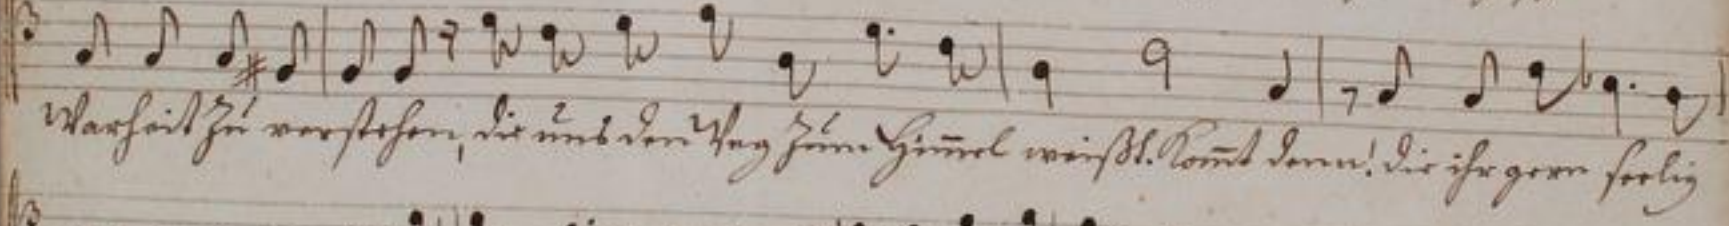 Warheit zu verstehen, die uns den Weg zum Him̅el weißt. Kom̅t denn! die ihr gern seelig